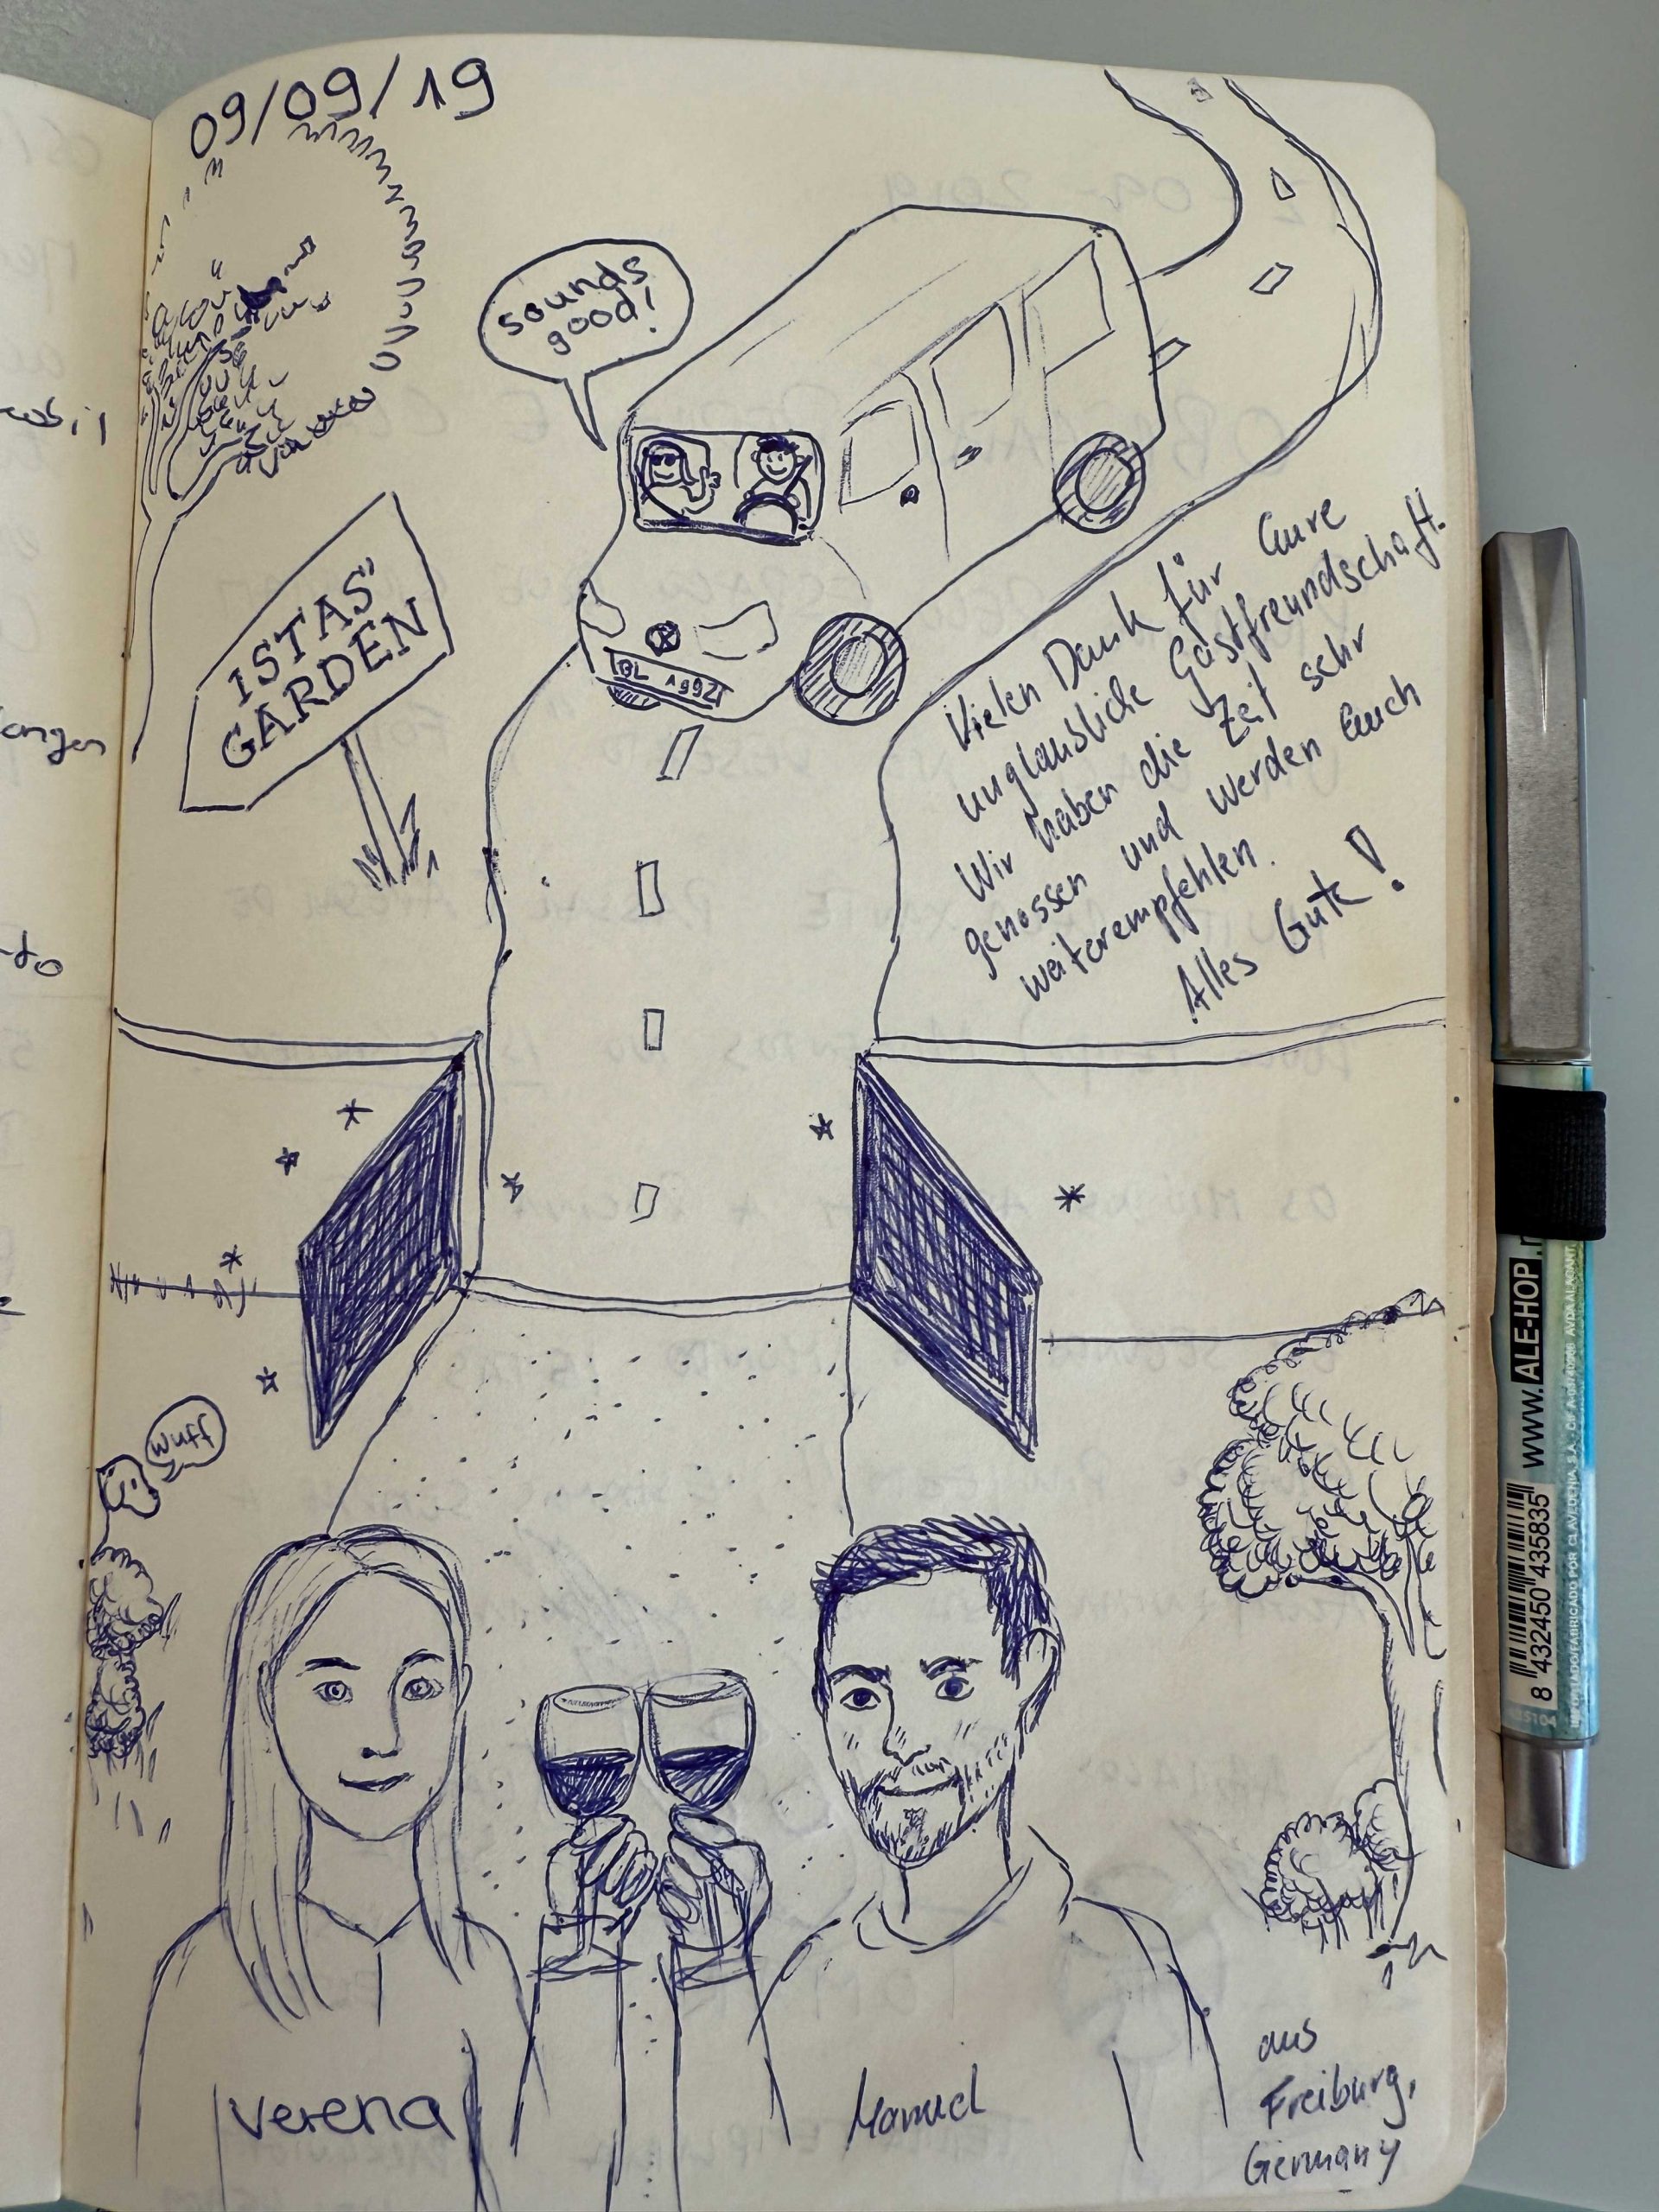 09/09/19
sounds
good!
ISTAS'
GARDEN
BL A992
Vielen Dank für Eure
unglaubliche Gastfreundschaft.
Wir haben die Zeit sehr
genossen und werden Euch
weiterempfehlen.
Alles Gute!
wuff
Verena
Manuel
aus
Freiburg,
Germany
www.ALE-HOP.
8 432450 435835